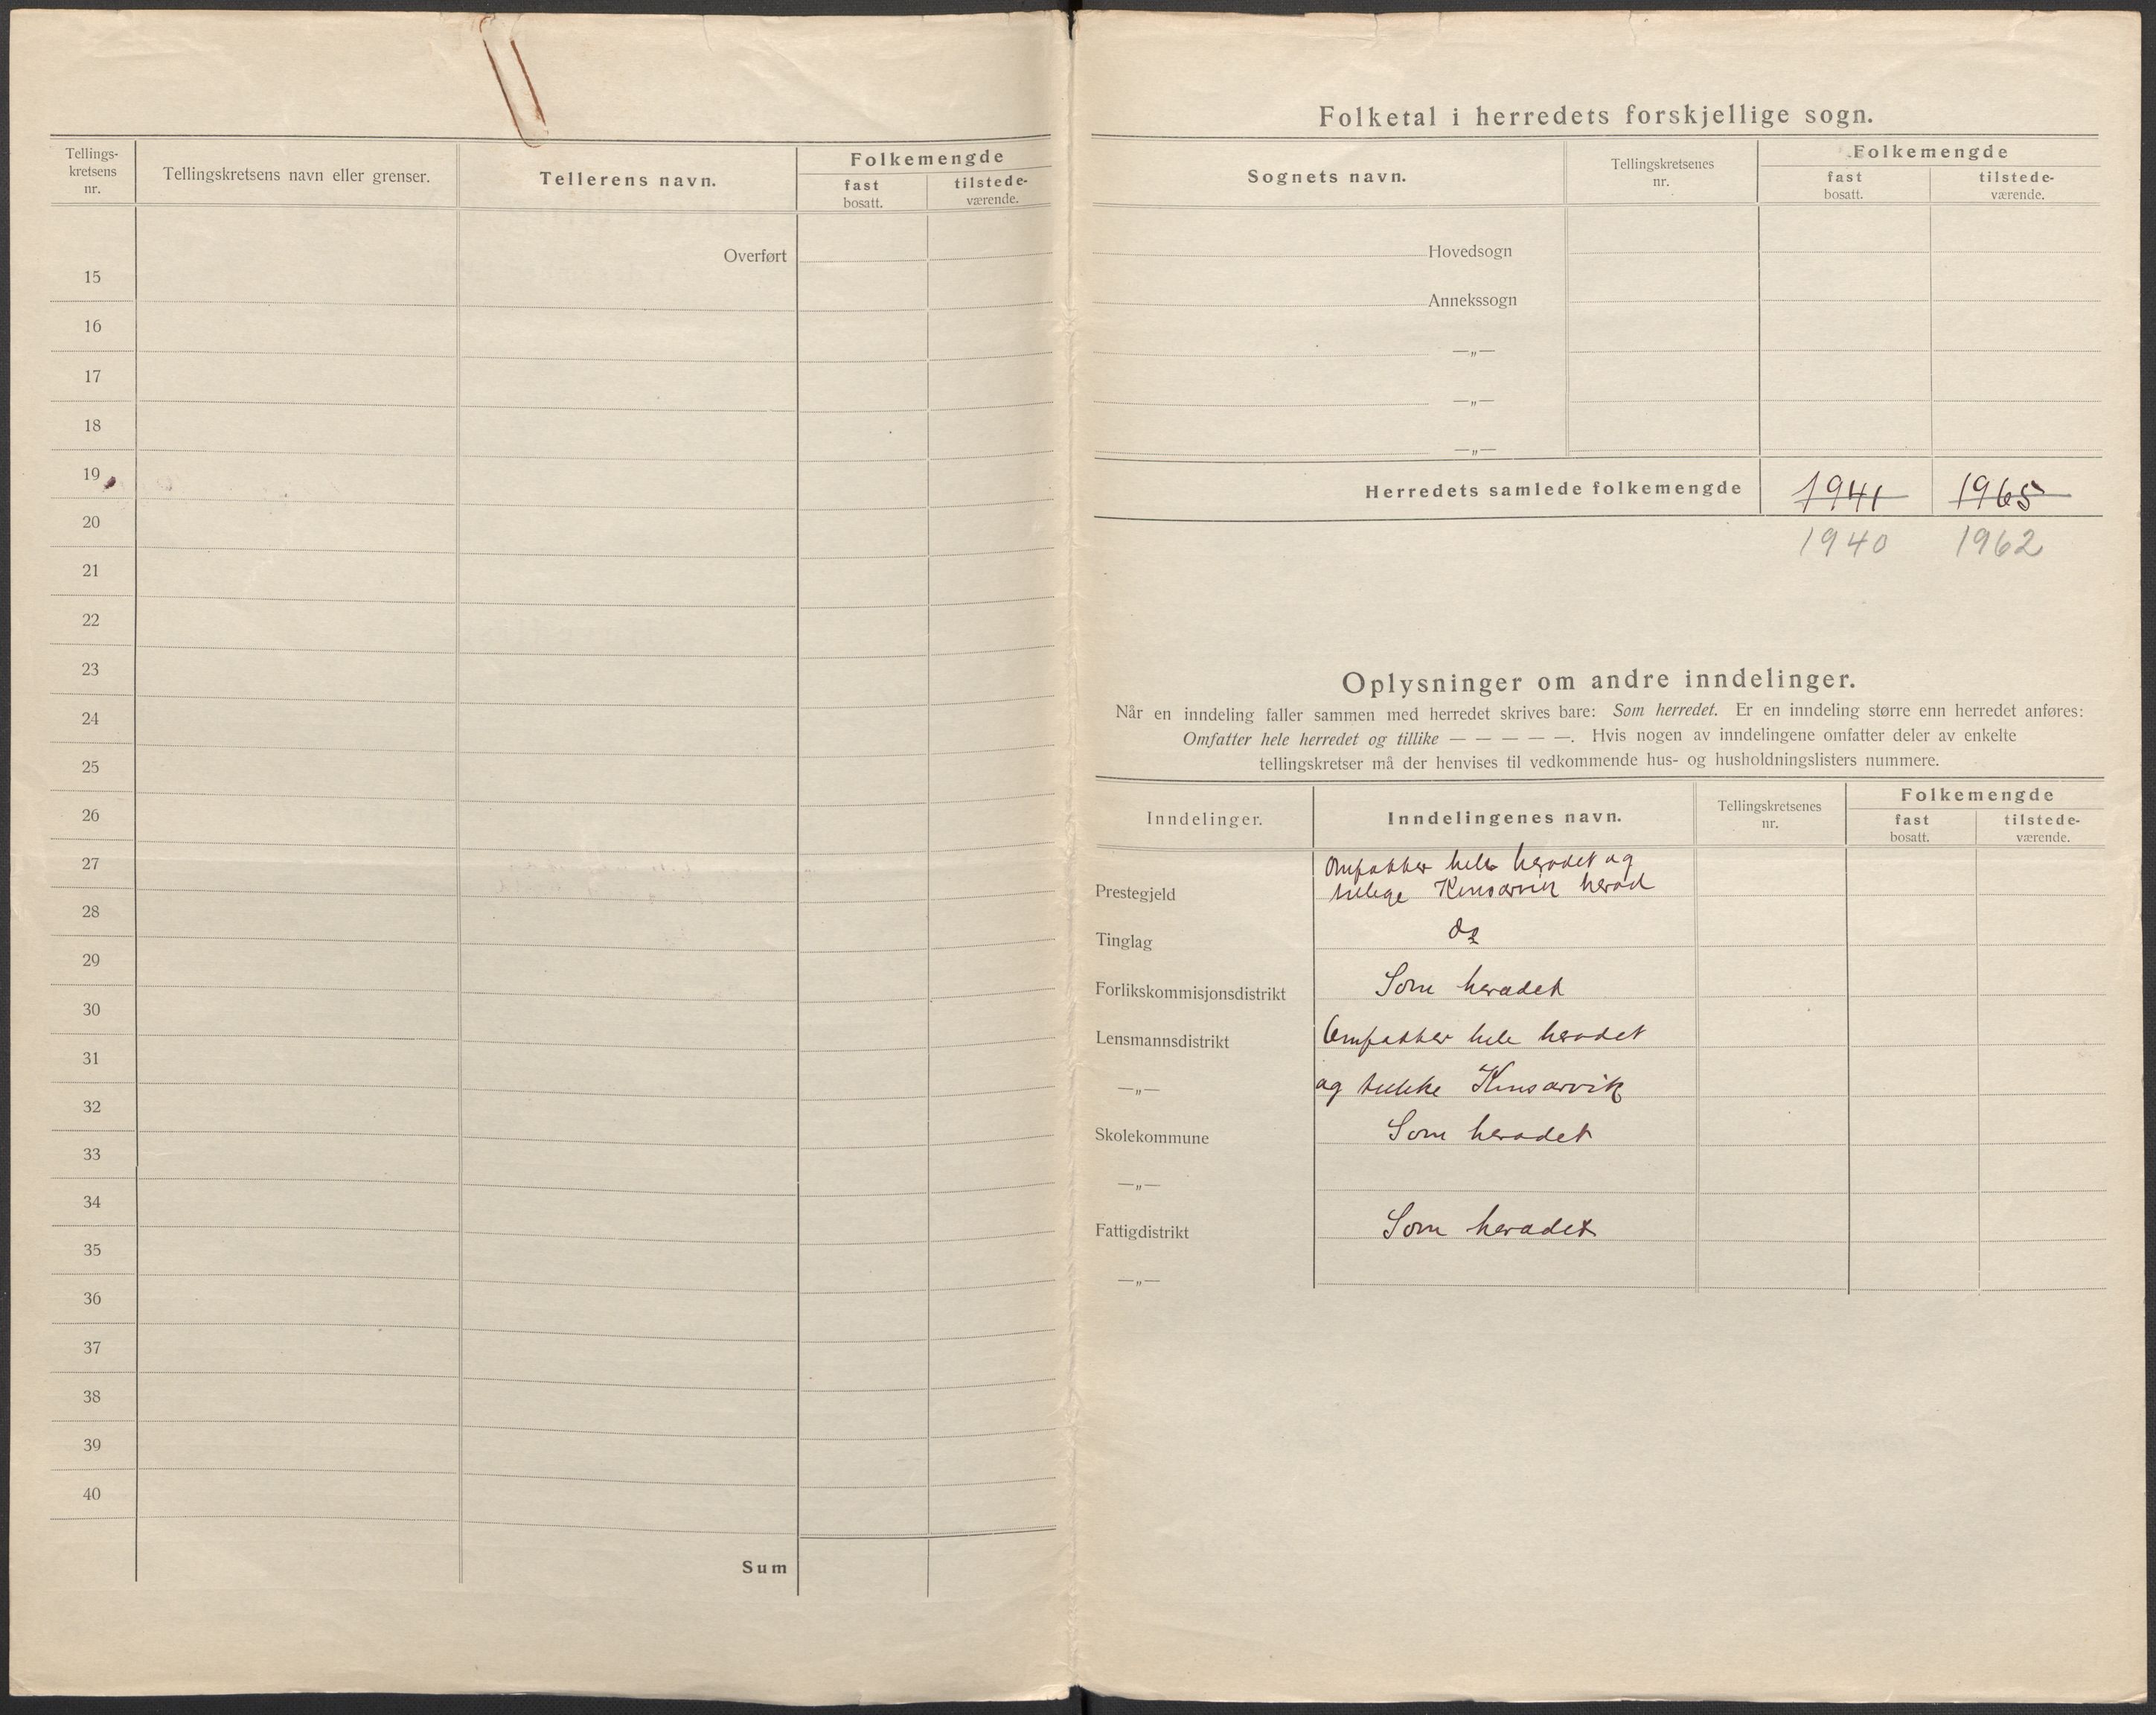 Tellings-
kretsens
nr.
Tellingskretsens navn eller grenser.
Tellerens navn.
Folkemengde
fast
bosatt.
tilstede-
værende.
Overført
15
16
17
18
19
20
21
22
23
24
25
26
27
28
29
30
31
32
33
34
35
36
37
38
39
40
Sum
Folketal i herredets forskjellige sogn.
Sognets navn.
Tellingskretsenes
nr.
Folkemengde
fast
bosatt.
tilstede-
værende.
Hovedsogn
Annekssogn
—„—
—„—
—„—
Herredets samlede folkemengde 1941 1965
1940 1962
Oplysninger om andre inndelinger.
Når en inndeling faller sammen med herredet skrives bare: Som herredet. Er en inndeling større enn herredet anføres:
Omfatter hele herredet og tillike — — — — —. Hvis nogen av inndelingene omfatter deler av enkelte
tellingskretser må der henvises til vedkommende hus- og husholdningslisters nummere.
Inndelinger.
Inndelingenes navn.
Tellingskretsenes
nr.
Folkemengde
fast
bosatt.
tilstede-
værende.
Omfatter hele heradet og
Prestegjeld tillege Kinsarvik herad
Tinglag do
Forlikskommisjonsdistrikt Som heradet
Lensmannsdistrikt Omfatter hele heradet
—„— og tillike Kinsarvik
Skolekommune Som heradet
—„—
Fattigdistrikt Som heradet
—„—